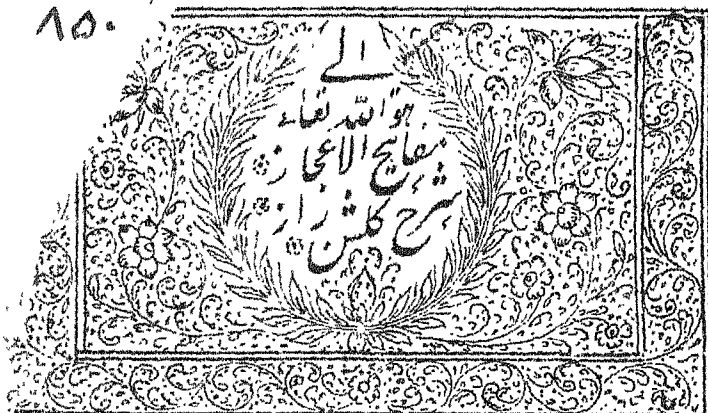 ۸۵۰
الے
هو اللہ تعالے
مفاتیح الاعجاز
شرح گلشن راز